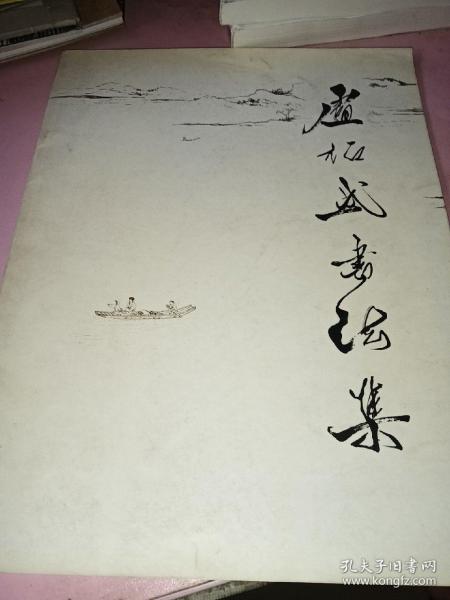 卢松武书法集
孔夫子旧书网
www.kongfz.com